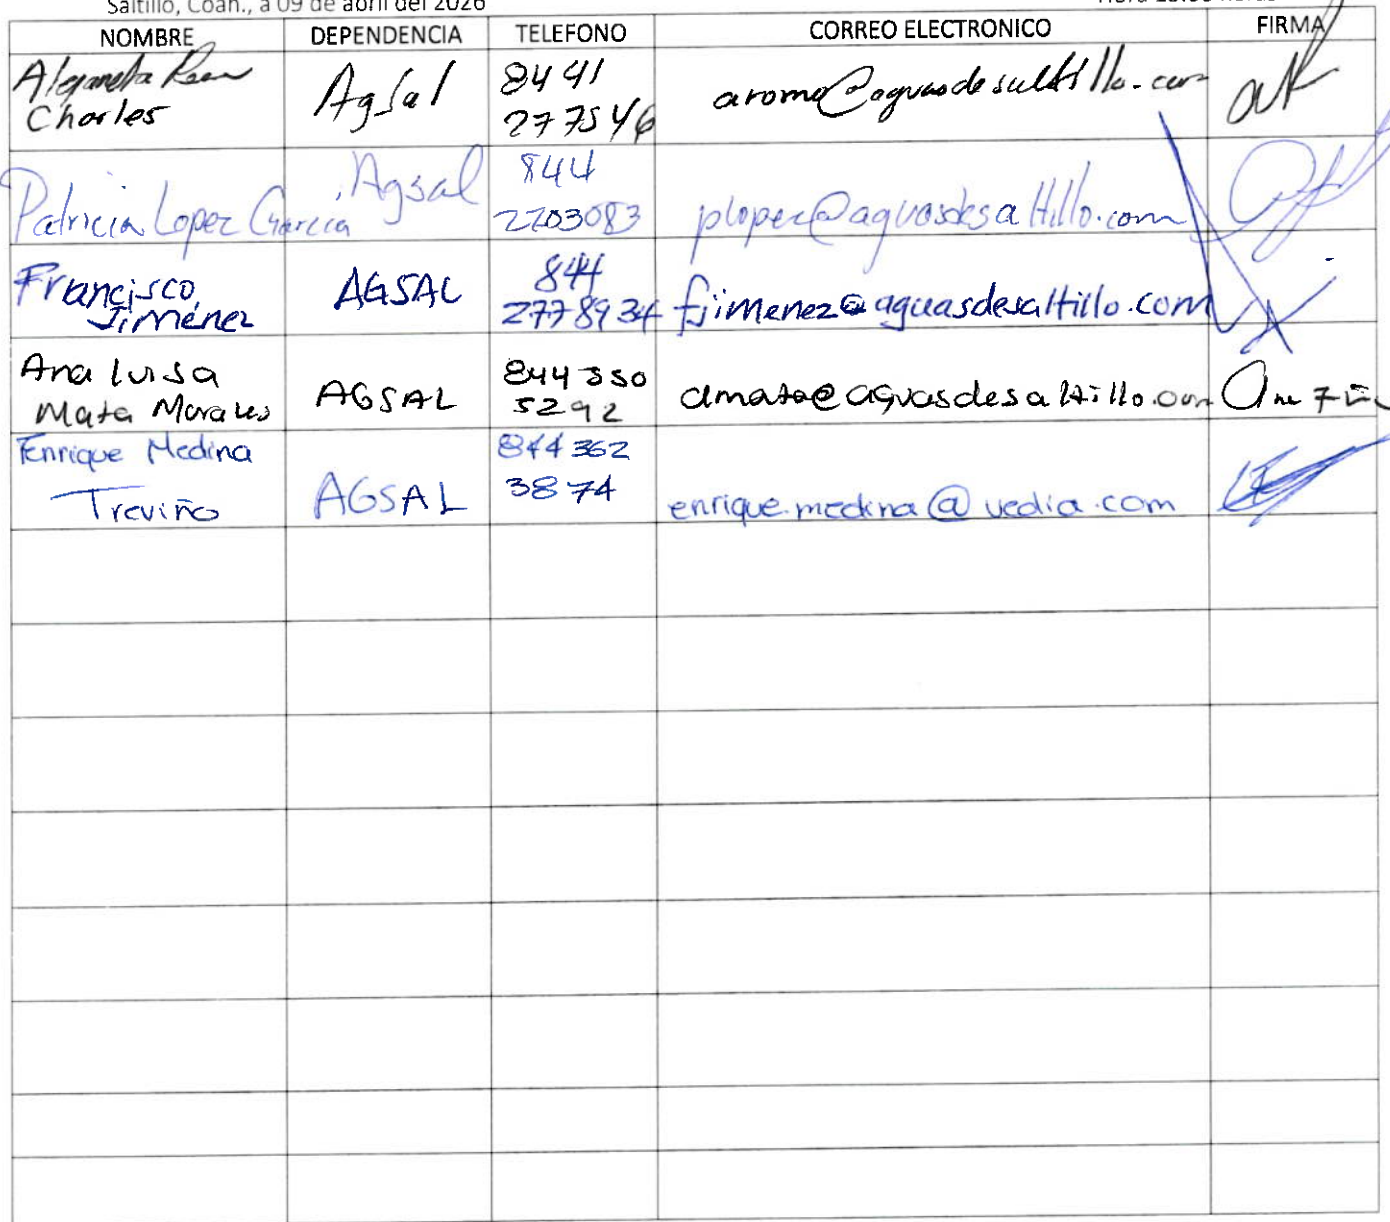 Saltillo, Coah., a 09 de abril del 2026
NOMBRE DEPENDENCIA TELEFONO CORREO ELECTRONICO FIRMA
Alejandra
Charles
AgSal
8441
277546
Patricia Lopez Garcia
Agsal
844
2203083
plopez@aguasdesaltillo.com
Francisco
Jiménez
AGSAL
844
2778934
fjimenez@aguasdesaltillo.com
Ana Luisa
Mata Morales
AGSAL
844 350
5292
amata@aguasdesaltillo.com
Enrique Medina
Treviño
AGSAL
844 362
3874
enrique.medina@vedia.com